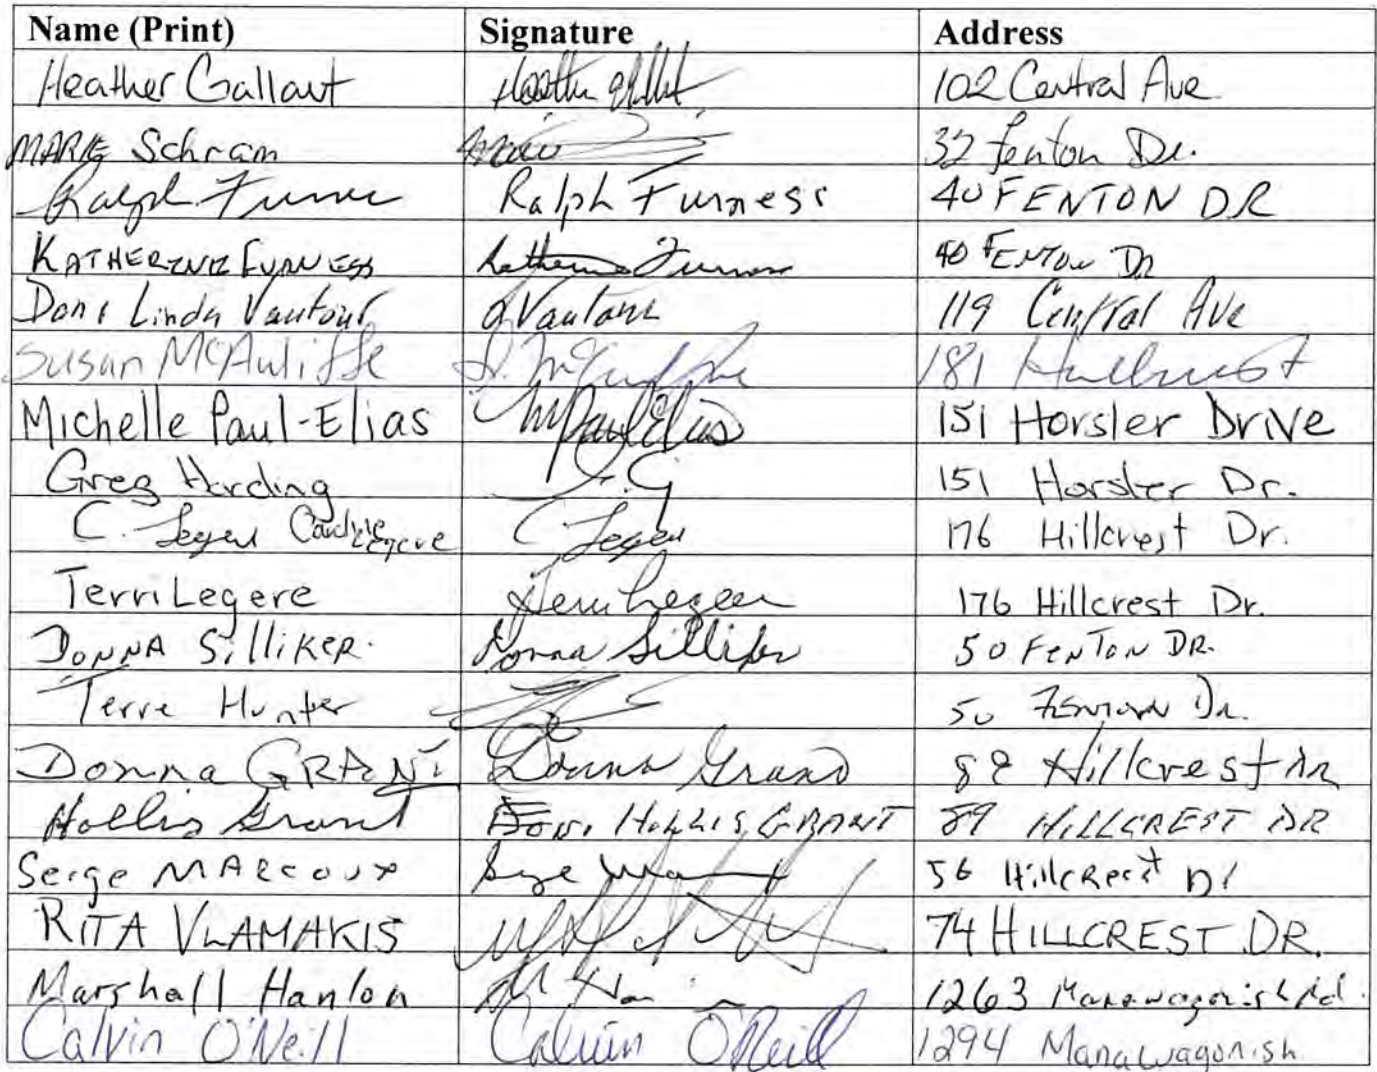 Name (Print) Signature Address
Heather Gallant 102 Central Ave.
MARIE Schram 32 Fenton Dr.
Ralph Furness Ralph Furness 40 FENTON DR
KATHERINE FURNESS Katherine Furness 40 FENTON DR
Don & Linda Vautour Vautour 119 Central Ave
Susan McAuliffe S. McAuliffe 181 Hillcrest
Michelle Paul-Elias MPaulElias 151 Horsler Drive
Greg Harding G. 151 Horsler Dr.
C. Legere Legere C Legere 176 Hillcrest Dr.
Terri Legere Terri Legere 176 Hillcrest Dr.
DONNA SilliKER. Donna Silliker 50 FENTON DR.
Terre Hunter 50 FENTON DR.
Donna GRANT Donna Grant Hillcrest DR
Hollis Grant HOLLIS GRANT 89 HILLCREST DR
Serge MARCOUX Serge 56 Hillcrest Dr
RITA VLAMAKIS 74 HILLCREST DR.
Marshall Hanlon M Han 1263 Manawagonish Rd.
Calvin O'Neill Calvin O'Neill 1294 Manawagonish